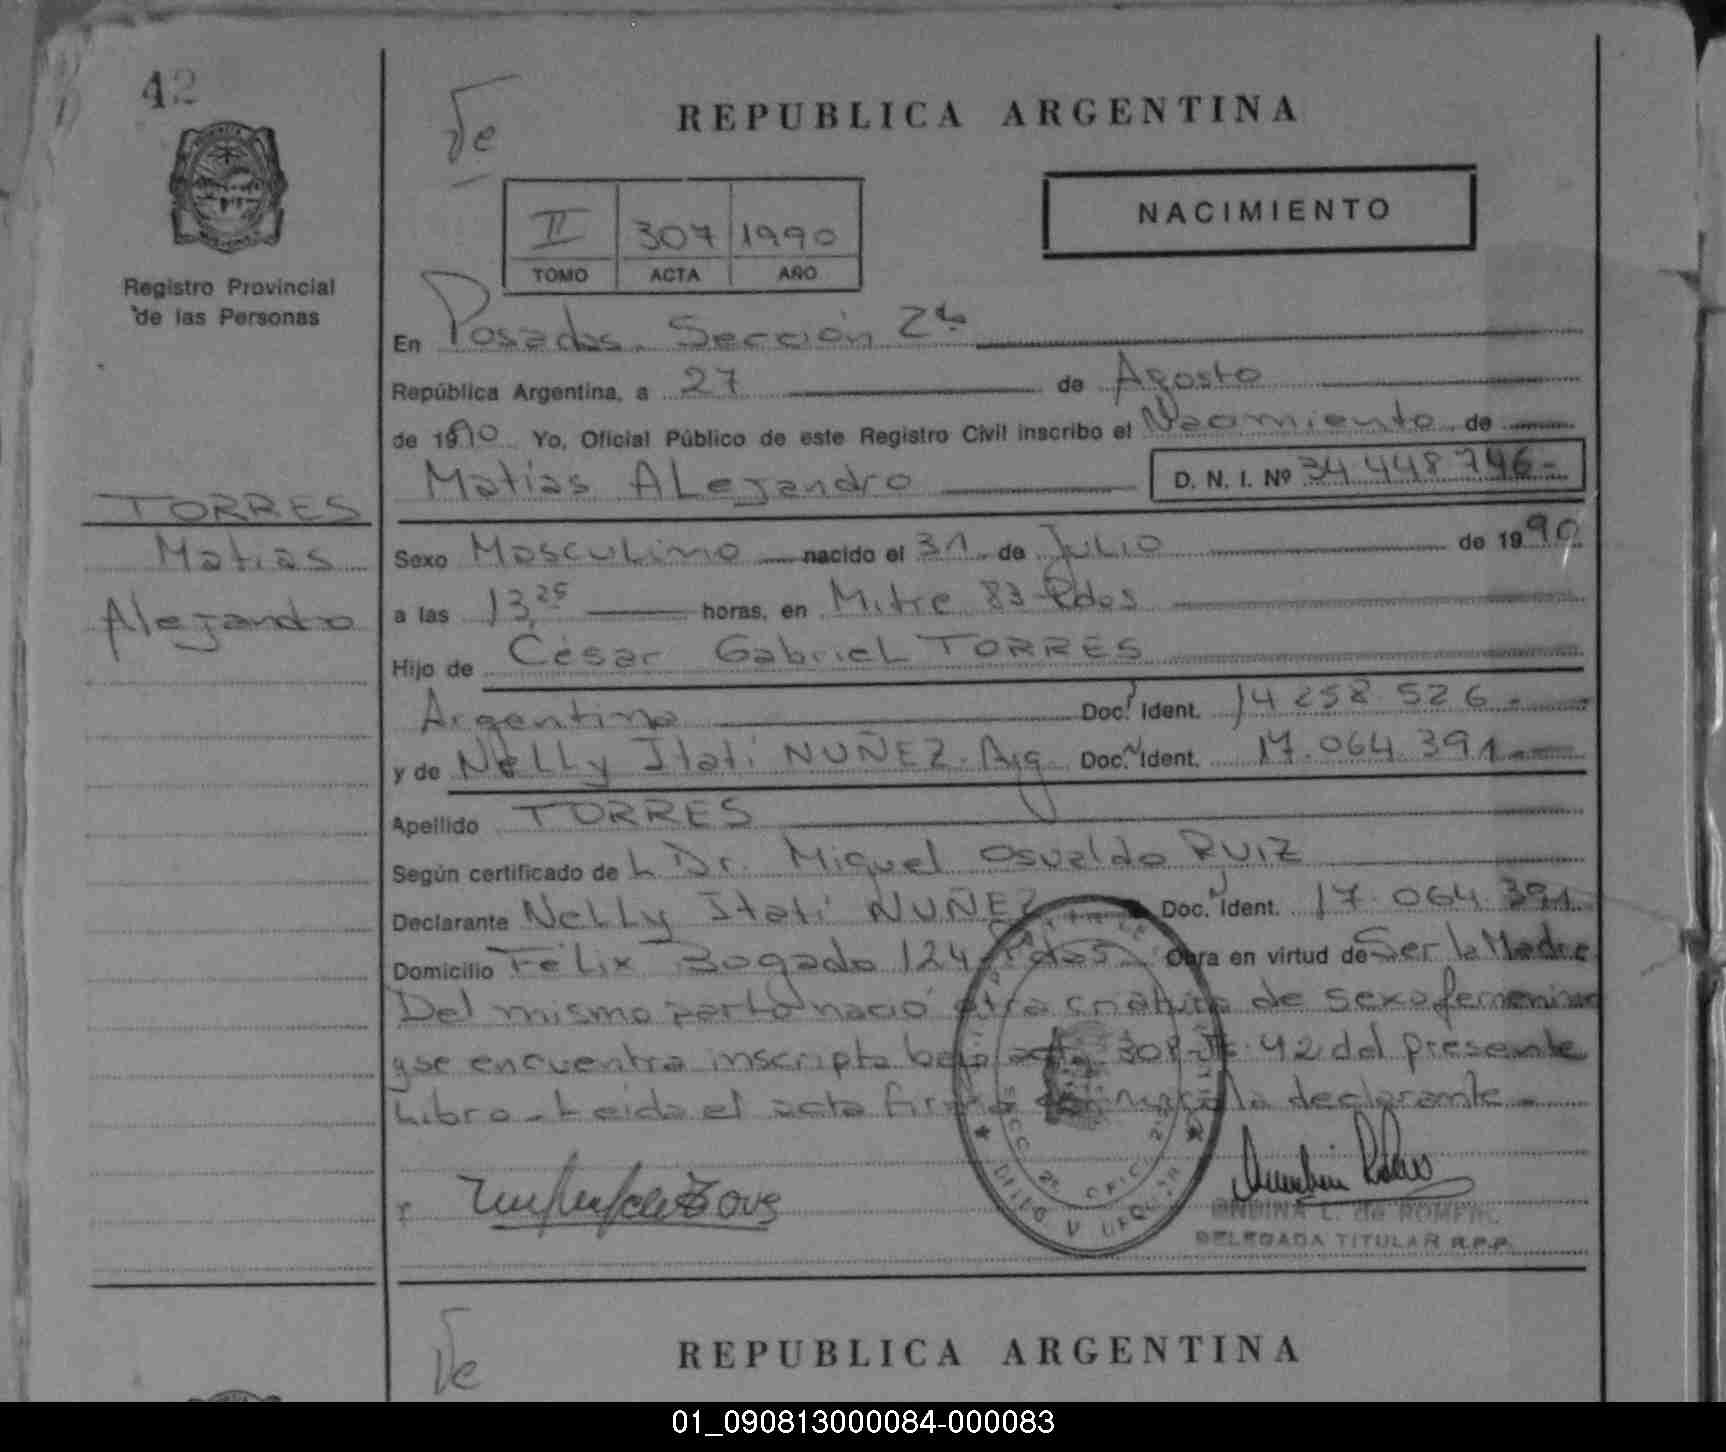 42
REPUBLICA ARGENTINA
NACIMIENTO
II 307 1990
TOMO ACTA AÑO
Registro Provincial
de las Personas
En Posadas. Sección 2ª
República Argentina, a 27 de Agosto
de 1990 Yo, Oficial Público de este Registro Civil inscribo el Nacimiento de
Matías Alejandro D. N. I. Nº 34 448 746-
TORRES
Matias
Alejandro
Sexo Masculino nacido el 31 de Julio de 1990
a las 13,25 horas, en Mitre 83 Pdas
Hijo de César Gabriel TORRES
Argentino Doc. Ident. 14 258 526-
y de Nelly Itatí NUÑEZ. Arg Doc. Ident. 17.064.391
Apellido TORRES
Según certificado de L Dr. Miguel Osvaldo RUIZ
Declarante Nelly Itatí NUÑEZ Doc. Ident. 17.064.391
Domicilio Félix Bogado 124 Pdas Obra en virtud de Ser la Madre
Del mismo parto nació otra criatura de sexo femenino
y se encuentra inscripta bajo acta 308 42 del presente
Libro_Leida el acta firma la declarante_
ONDINA L. de ROMERO
DELEGADA TITULAR R.P.P.
REPUBLICA ARGENTINA
01_090813000084-000083